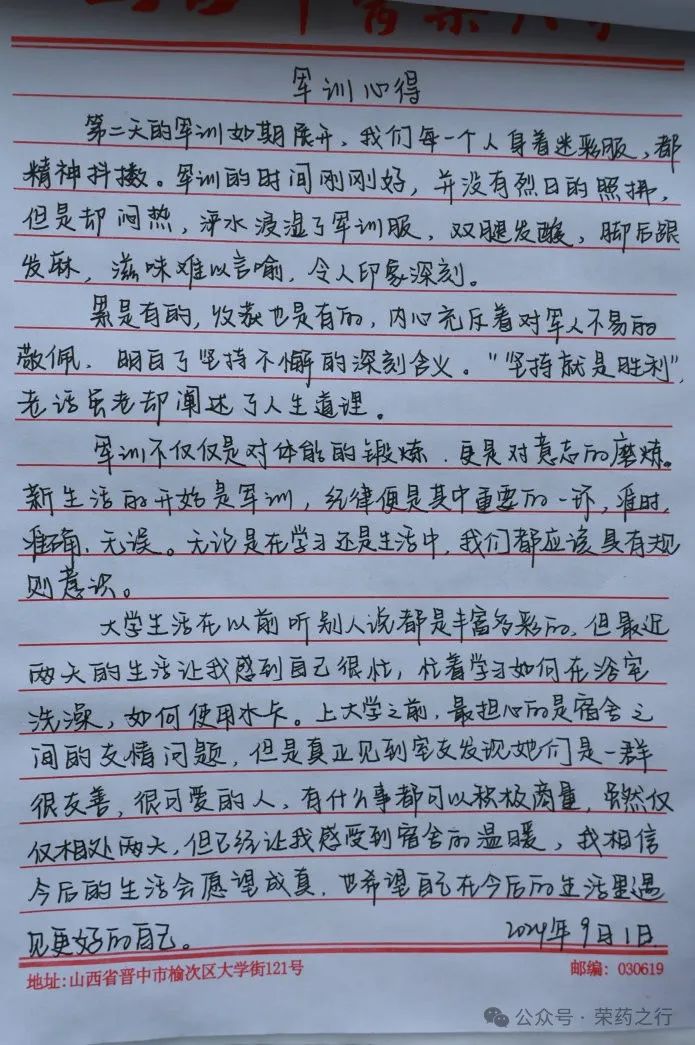 军训心得
第二天的军训如期展开，我们每一个人身着迷彩服，都
精神抖擞。军训的时间刚刚好，并没有烈日的照拂，
但是却闷热，汗水浸湿了军训服，双腿发酸，脚后跟
发麻，滋味难以言喻，令人印象深刻。
累是有的，收获也是有的，内心充斥着对军人不易的
敬佩，明白了坚持不懈的深刻含义。“坚持就是胜利”，
老话虽老却阐述了人生道理。
军训不仅仅是对体能的锻炼，更是对意志的磨炼。
新生活的开始是军训，纪律便是其中重要的一环，准时，
准确，无误。无论是在学习还是生活中，我们都应该具有规
则意识。
大学生活在以前听别人说都是丰富多彩的，但最近
两天的生活让我感到自己很忙，忙着学习如何在浴室
洗澡，如何使用水卡。上大学之前，最担心的是宿舍之
间的友情问题，但是真正见到室友发现她们是一群
很友善，很可爱的人，有什么事都可以积极商量，虽然仅
仅相处两天，但已经让我感受到宿舍的温暖，我相信
今后的生活会愿望成真，也希望自己在今后的生活里遇
见更好的自己。
2024年9月1日
地址:山西省晋中市榆次区大学街121号
邮编: 030619
公众号·荣药之行